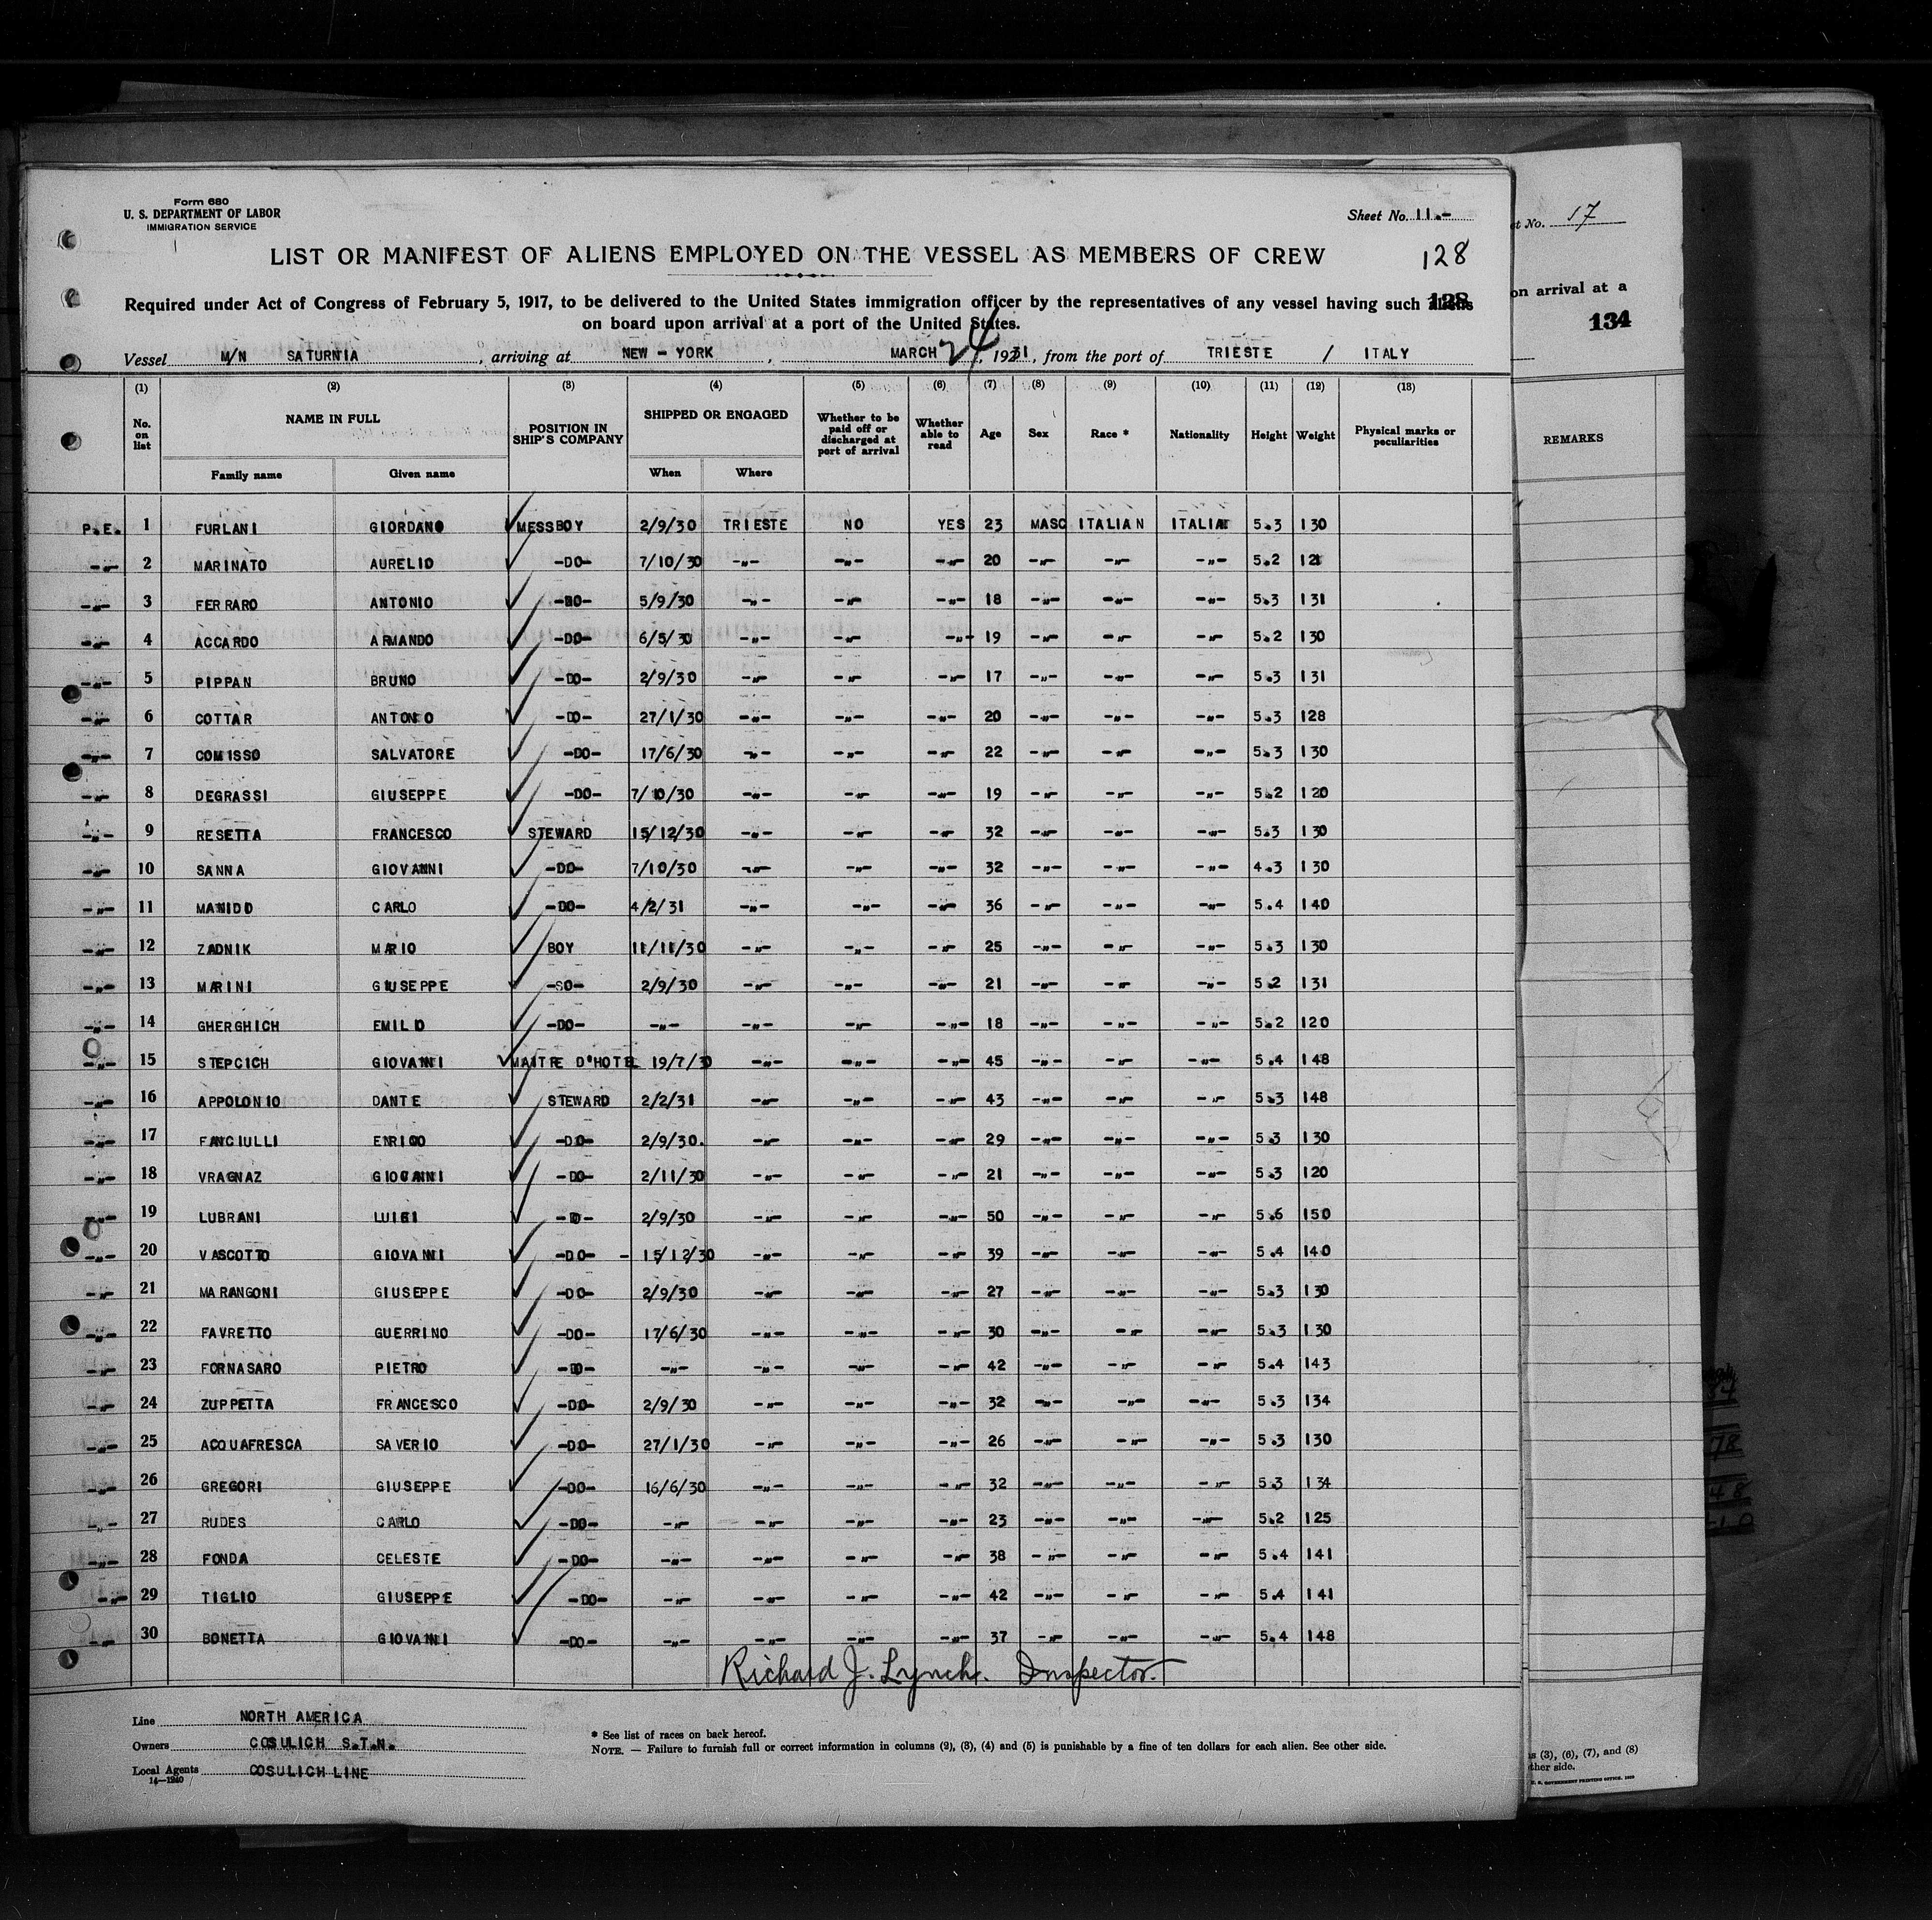 Form 680
U. S. DEPARTMENT OF LABOR
IMMIGRATION SERVICE
Sheet No. 11.-
LIST OR MANIFEST OF ALIENS EMPLOYED ON THE VESSEL AS MEMBERS OF CREW
128
Required under Act of Congress of February 5, 1917, to be delivered to the United States immigration officer by the representatives of any vessel having such aliens
128
on board upon arrival at a port of the United States.
Vessel M/N SATURNIA, arriving at NEW - YORK, MARCH 24, 1931, from the port of TRIESTE / ITALY
(1) (2) (3) (4) (5) (6) (7) (8) (9) (10) (11) (12) (13)
No. on list NAME IN FULL POSITION IN SHIP'S COMPANY SHIPPED OR ENGAGED Whether to be paid off or discharged at port of arrival Whether able to read Age Sex Race * Nationality Height Weight Physical marks or peculiarities
Family name Given name When Where
P.E. 1 FURLANI GIORDANO MESSBOY 2/9/30 TRIESTE NO YES 23 MASC ITALIAN ITALIAN 5.3 130
-"- 2 MARINATO AURELIO -DO- 7/10/30 -"- -"- -"- 20 -"- -"- -"- 5.2 121
-"- 3 FERRARO ANTONIO -DO- 5/9/30 -"- -"- -"- 18 -"- -"- -"- 5.3 131
-"- 4 ACCARDO ARMANDO -DO- 6/5/30 -"- -"- -"- 19 -"- -"- -"- 5.2 130
-"- 5 PIPPAN BRUNO -DO- 2/9/30 -"- -"- -"- 17 -"- -"- -"- 5.3 131
-"- 6 COTTAR ANTONO -DO- 27/1/30 -"- -"- -"- 20 -"- -"- -"- 5.3 128
-"- 7 COMISSO SALVATORE -DO- 17/6/30 -"- -"- -"- 22 -"- -"- -"- 5.3 130
-"- 8 DEGRASSI GIUSEPPE -DO- 7/10/30 -"- -"- -"- 19 -"- -"- -"- 5.2 120
-"- 9 RESETTA FRANCESCO STEWARD 15/12/30 -"- -"- -"- 32 -"- -"- -"- 5.3 130
-"- 10 SANNA GIOVANNI -DO- 7/10/30 -"- -"- -"- 32 -"- -"- -"- 4.3 130
-"- 11 MANIDO CARLO -DO- 4/2/31 -"- -"- -"- 36 -"- -"- -"- 5.4 140
-"- 12 ZADNIK MARIO BOY 11/11/30 -"- -"- -"- 25 -"- -"- -"- 5.3 130
-"- 13 MARINI GIUSEPPE -SO- 2/9/30 -"- -"- -"- 21 -"- -"- -"- 5.2 131
-"- 14 GHERGHICH EMILIO -DO- -"- -"- -"- -"- 18 -"- -"- -"- 5.2 120
-"- 15 STEPCICH GIOVANNI MAITRE D'HOTEL 19/7/30 -"- -"- -"- 45 -"- -"- -"- 5.4 148
-"- 16 APPOLONIO DANTE STEWARD 2/2/31 -"- -"- -"- 43 -"- -"- -"- 5.3 148
-"- 17 FANCIULLI ENRICO -DO- 2/9/30. -"- -"- -"- 29 -"- -"- -"- 5.3 130
-"- 18 VRAGNAZ GIOVANNI -DO- 2/11/30 -"- -"- -"- 21 -"- -"- -"- 5.3 120
-"- 19 LUBRANI LUIGI -D- 2/9/30 -"- -"- -"- 50 -"- -"- -"- 5.6 150
-"- 20 VASCOTTO GIOVANNI -DO- - 15/12/30 -"- -"- -"- 39 -"- -"- -"- 5.4 140
-"- 21 MARANGONI GIUSEPPE -DO- 2/9/30 -"- -"- -"- 27 -"- -"- -"- 5.3 130
-"- 22 FAVRETTO GUERRINO -DO- 17/6/30 -"- -"- -"- 30 -"- -"- -"- 5.3 130
-"- 23 FORNASARO PIETRO -DO- -"- -"- -"- -"- 42 -"- -"- -"- 5.4 143
-"- 24 ZUPPETTA FRANCESCO -DO- 2/9/30 -"- -"- -"- 32 -"- -"- -"- 5.3 134
-"- 25 ACQUAFRESCA SAVERIO -DO- 27/1/30 -"- -"- -"- 26 -"- -"- -"- 5.3 130
-"- 26 GREGORI GIUSEPPE -DO- 16/6/30 -"- -"- -"- 32 -"- -"- -"- 5.3 134
-"- 27 RUDES CARLO -DO- -"- -"- -"- -"- 23 -"- -"- -"- 5.2 125
-"- 28 FONDA CELESTE -DO- -"- -"- -"- -"- 38 -"- -"- -"- 5.4 141
-"- 29 TIGLIO GIUSEPPE -DO- -"- -"- -"- -"- 42 -"- -"- -"- 5.4 141
-"- 30 BONETTA GIOVANNI -DO- -"- -"- -"- -"- 37 -"- -"- -"- 5.4 148
Richard J. Lynch. Inspector.
Line NORTH AMERICA
Owners COSULICH S.T.N.
Local Agents COSULICH LINE
14-1240
* See list of races on back hereof.
NOTE. — Failure to furnish full or correct information in columns (2), (3), (4) and (5) is punishable by a fine of ten dollars for each alien. See other side.
et No. 17
on arrival at a
134
REMARKS
(3), (6), (7), and (8)
other side.
U. S. GOVERNMENT PRINTING OFFICE